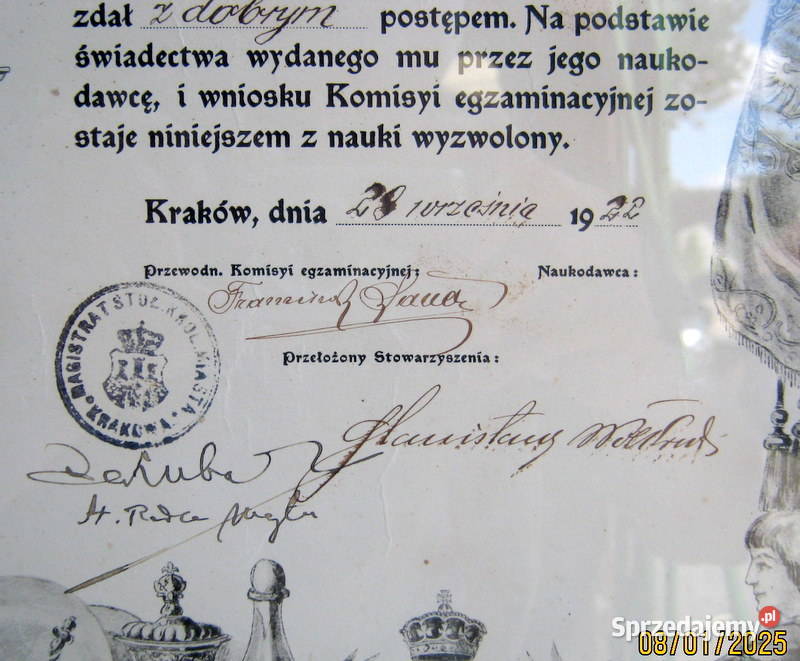 zdał z dobrym postępem. Na podstawie
świadectwa wydanego mu przez jego nauko-
dawcę, i wniosku Komisyi egzaminacyjnej zo-
staje niniejszem z nauki wyzwolony.
Kraków, dnia 28 września 1922
Przewodn. Komisyi egzaminacyjnej: Naukodawca:
Przełożony Stowarzyszenia:
MAGISTRAT STOŁ. KRÓL. MIASTA
KRAKOWA
Stanisław
St. Radca
Sprzedajemy.pl
08/01/2025